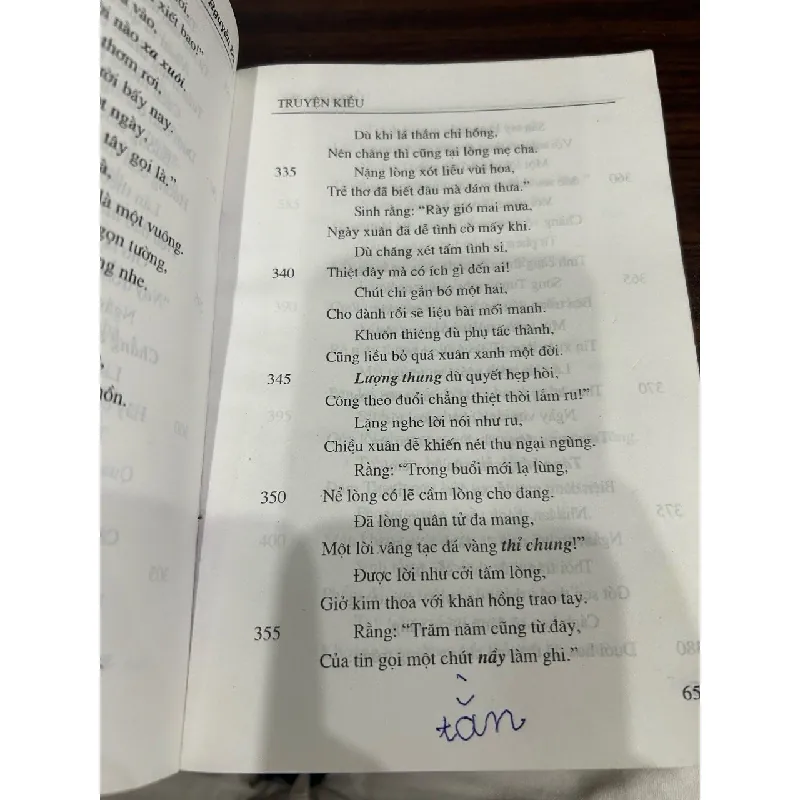 xiết bao!"
vào,
nào xa xuôi.
thơm rơi,
bấy nay.
ngày,
tây gọi là."
là một vuông.
gọn tường,
nhe.
TRUYỆN KIỀU
Dù khi lá thắm chỉ hồng,
Nên chăng thì cũng tại lòng mẹ cha.
335 Nặng lòng xót liễu vì hoa,
Trẻ thơ đã biết đâu mà dám thưa."
Sinh rằng: "Rày gió mai mưa,
Ngày xuân đã dễ tình cờ mấy khi.
Dù chăng xét tấm tình si,
340 Thiệt đây mà có ích gì đến ai!
Chút chi gắn bó một hai,
Cho đành rồi sẽ liệu bài mối manh.
Khuôn thiêng dù phụ tấc thành,
Cũng liều bỏ quá xuân xanh một đời.
345 Lượng thung dù quyết hẹp hòi,
Công theo đuổi chẳng thiệt thòi lắm ru!"
Lặng nghe lời nói như ru,
Chiều xuân dễ khiến nét thu ngại ngùng.
Rằng: "Trong buổi mới lạ lùng,
350 Nể lòng có lẽ cầm lòng cho đang.
Đã lòng quân tử đa mang,
Một lời vâng tạc đá vàng thỉ chung!"
Được lời như cởi tấm lòng,
Giở kim thoa với khăn hồng trao tay.
355 Rằng: "Trăm năm cũng từ đây,
Của tin gọi một chút nầy làm ghi."
65